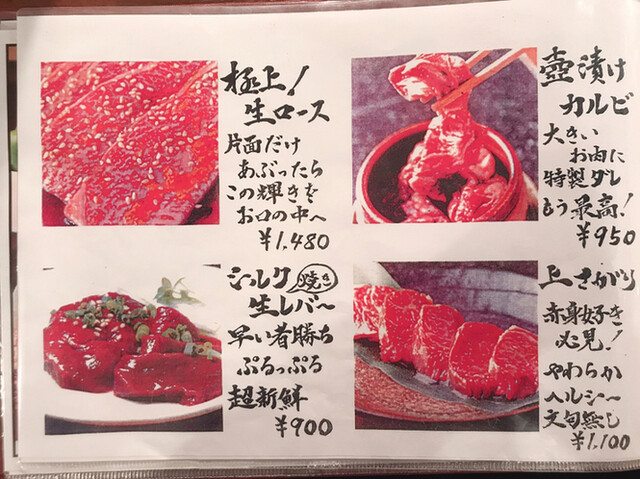 極上!
生ロース
片面だけ
あぶったら
この輝きを
お口の中へ
¥1,480
壺漬け
カルビ
大きい
お肉に
特製ダレ
もう最高!
¥950
シルク焼き
生レバー
早い者勝ち
ぷるっぷる
超新鮮
¥900
上さがり
赤身好き
必見!
やわらか
ヘルシー
文句無し
¥1,100